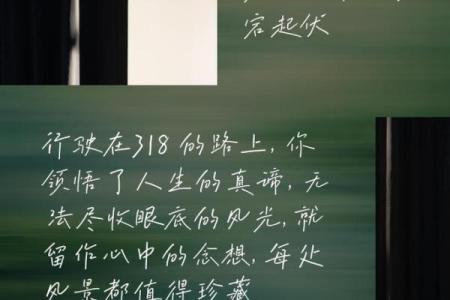 容起伏
行驶在318的路上,你
领悟了人生的真谛,无
法尽收眼底的风光,就
留作心中的念想,每处
风景都值得珍藏